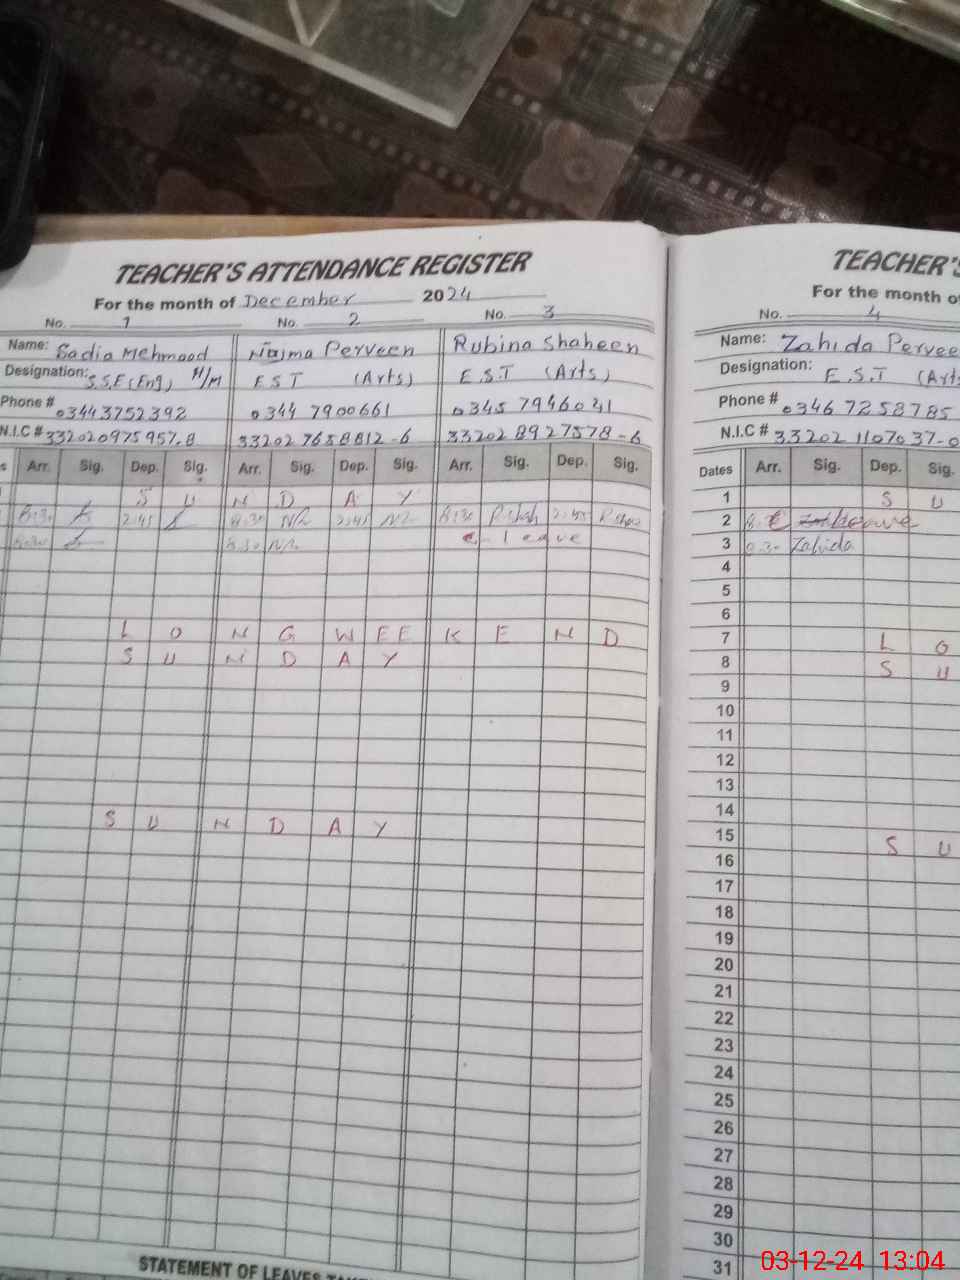 TEACHER'S ATTENDANCE REGISTER
For the month of December 2024
No. 1 No. 2 No. 3
Name: Sadia Mehmood Najma Perveen Rubina Shaheen
Designation: S.S.E (Eng) H/M E S T (Arts) E.S.T (Arts)
Phone # 03443752392 0344 7900661 0345 7946041
N.I.C # 332020975957-8 332027658812-6 332028927578-6
Arr. Sig. Dep. Sig. Arr. Sig. Dep. Sig. Arr. Sig. Dep. Sig.
S U N D A Y
8:30 2:45 8:30 2:45 8:30 2:45
8:30 8:30 leave
L O N G W E E K E N D
S U N D A Y
S U N D A Y
STATEMENT OF LEAVES
TEACHER'S
For the month of
No. 4
Name: Zahida Pervee
Designation: E.S.T (Art
Phone # 0346 7258785
N.I.C # 33202 1107037-0
Dates Arr. Sig. Dep. Sig.
1 S U
2 leave
3 8:30 Zahida
4
5
6
7 L O
8 S U
9
10
11
12
13
14
15 S U
16
17
18
19
20
21
22
23
24
25
26
27
28
29
30
31
03-12-24 13:04